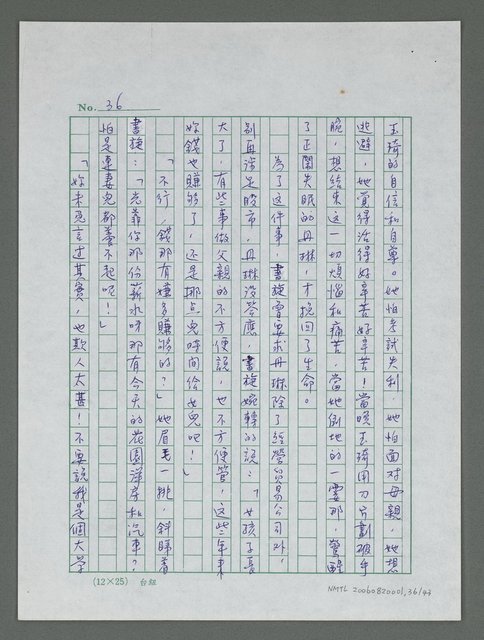 No. 36
玉琦的自信和自尊。她怕考試失利,她怕面對母親,她想
逃避,她覺得活得好辛苦好辛苦!當喚玉琦用刀片劃破手
腕,想結束這一切煩惱和痛苦,當她倒地的一霎那,驚醒
了正鬧失眠的丹琳,才挽回了生命。
為了這件事,書旋曾要求丹琳除了經營貿易公司外,
別再涉足股市,丹琳沒答應,書旋婉轉的說:「女孩子長
大了,有些事做父親的不方便說,也不方便管,這些年來
妳錢也賺夠了,還是挪点兒時間給女兒吧!」
「不行,錢那有嫌多賺夠的?」她眉毛一挑,斜睇着
書旋:「光靠你那份薪水呀那有今天的花園洋房和汽車?
怕是連妻兒都養不起呢!」
「妳未免言過其實,也欺人太甚!不要說我是個大學
(12×25) 台紐
NMTL 20060820001, 36/43